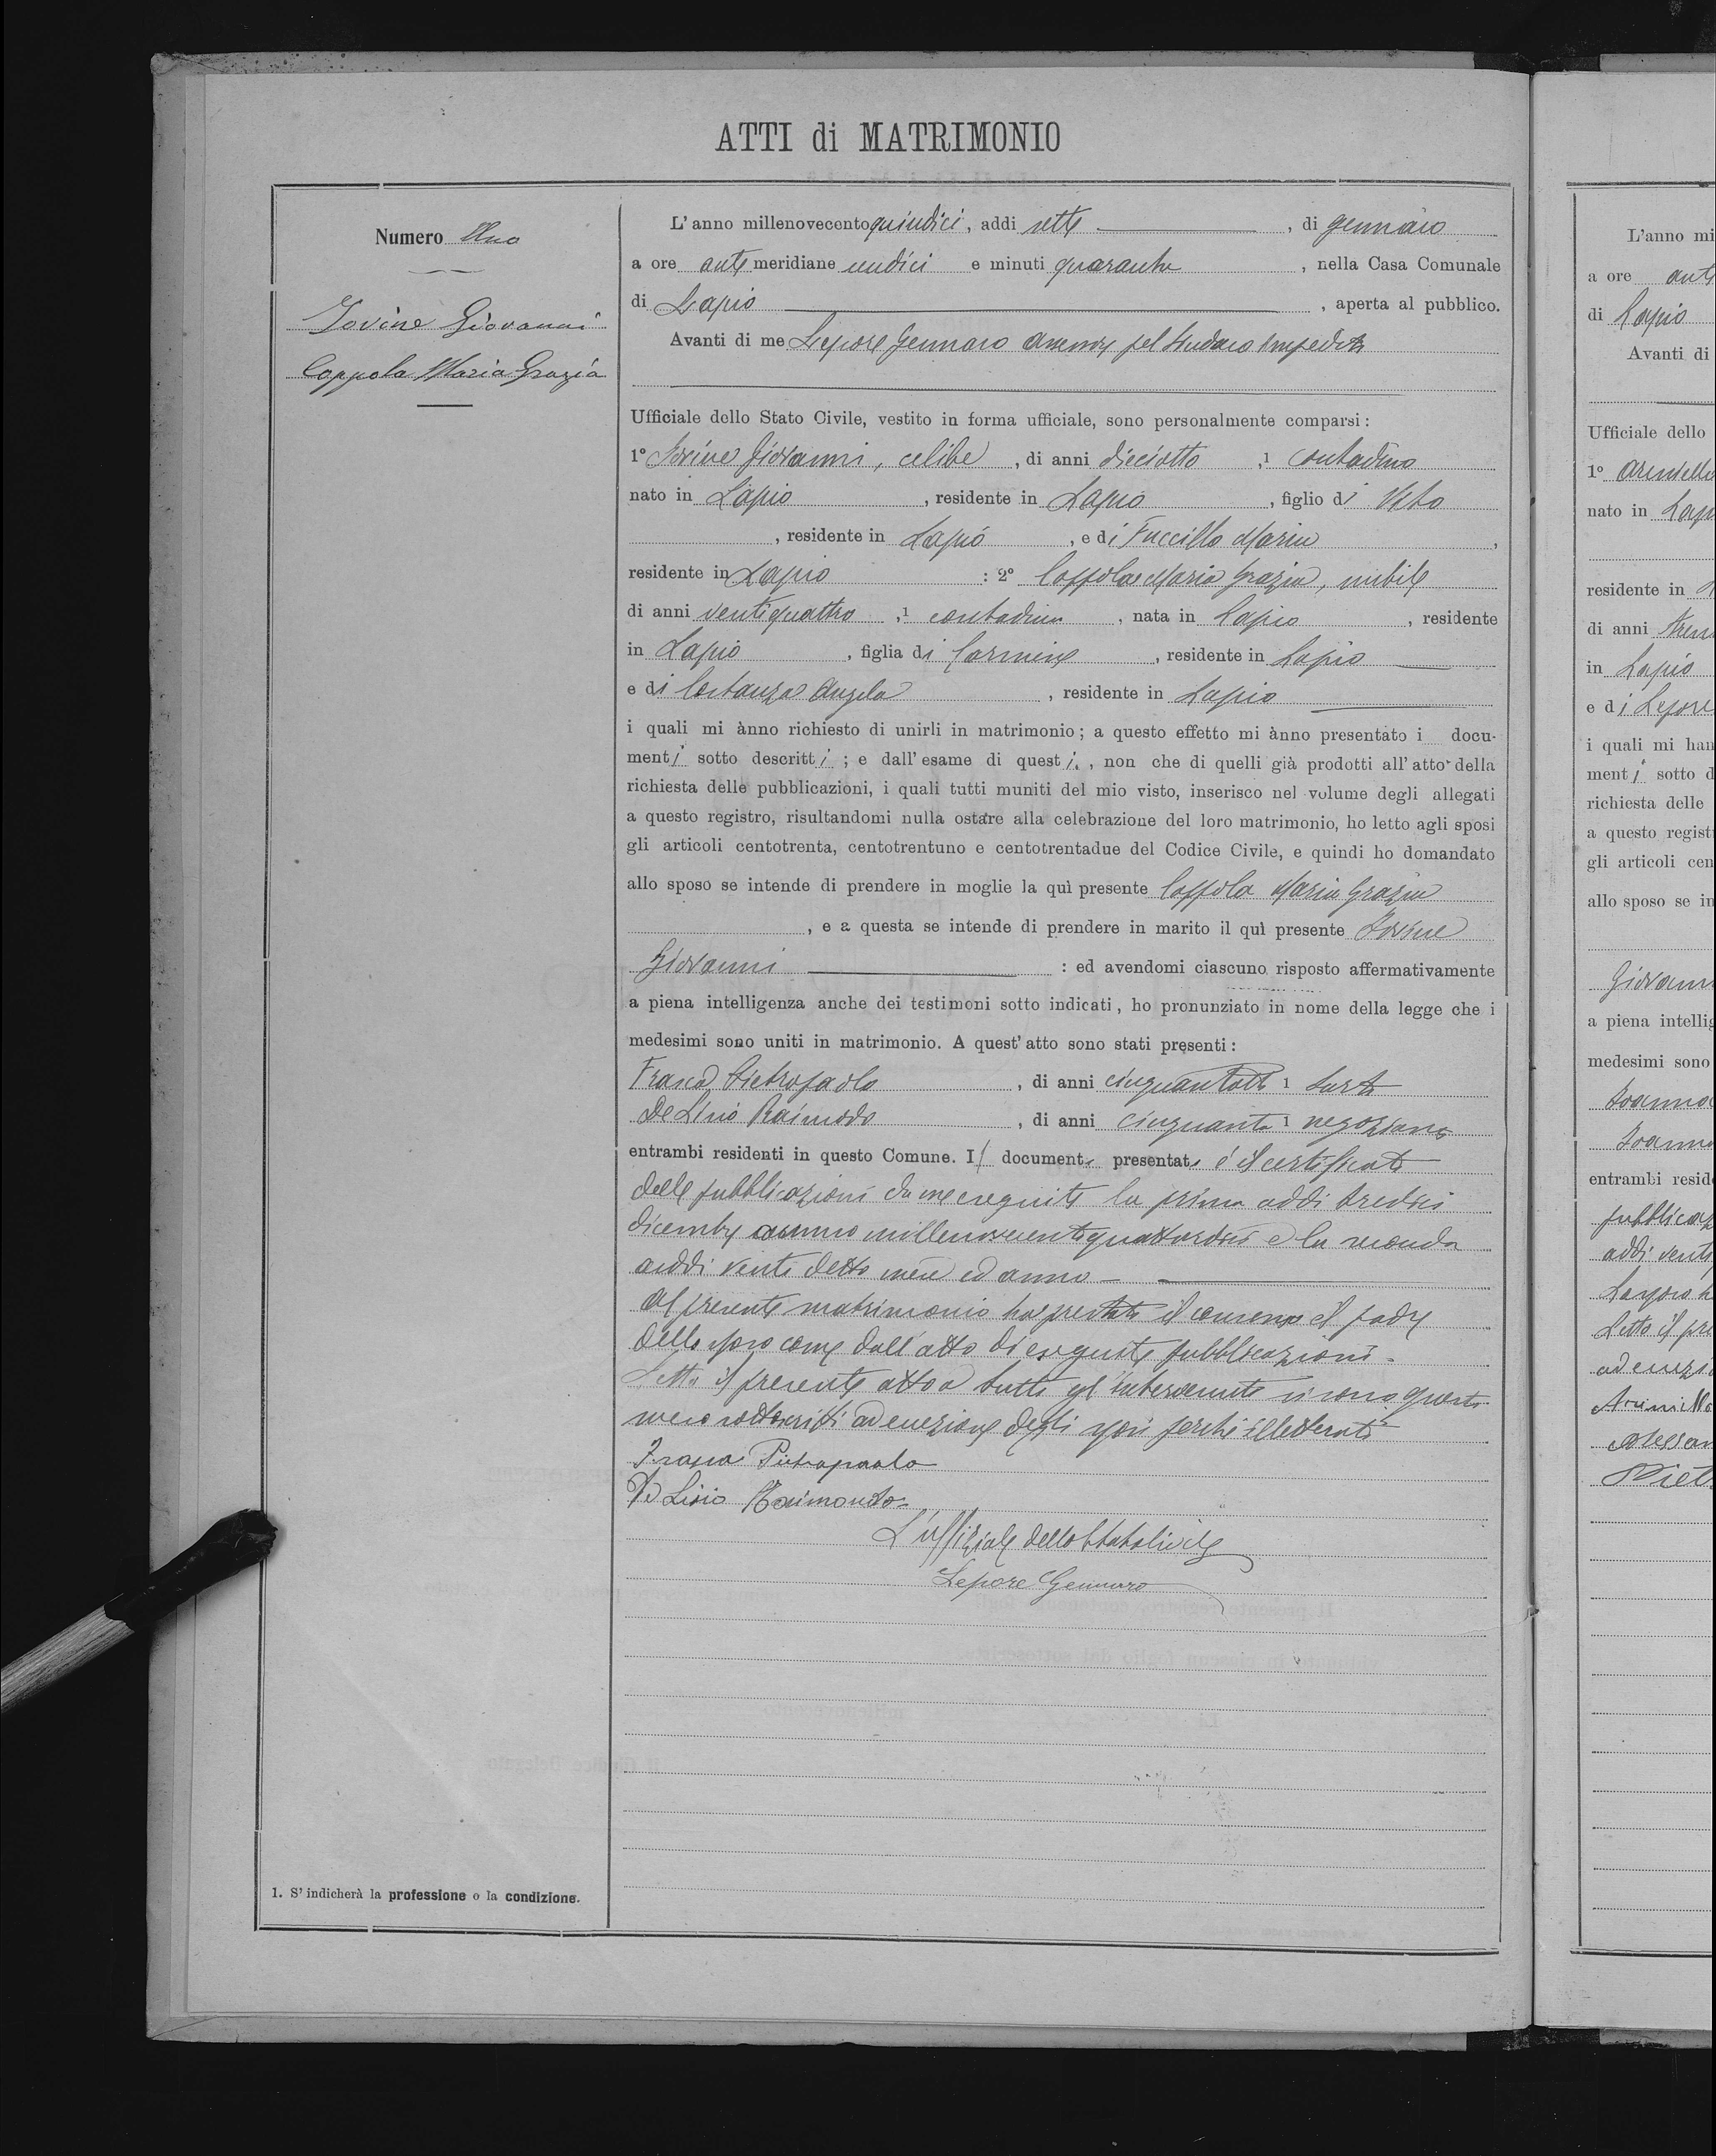 ATTI di MATRIMONIO
Numero Uno
Iovine Giovanni
Coppola Maria Grazia
L'anno millenovecentoquindici, addi sette, di gennaio
a ore antemeridiane undici e minuti quaranta, nella Casa Comunale
di Lapio, aperta al pubblico.
Avanti di me Lepore Gennaro assessore pel Sindaco impedito
Ufficiale dello Stato Civile, vestito in forma ufficiale, sono personalmente comparsi:
1° Iovine Giovanni, celibe, di anni dieciotto, 1 contadino
nato in Lapio, residente in Lapio, figlio di Vito
, residente in Lapio, e di Fuccillo Maria,
residente in Lapio: 2° Coppola Maria Grazia, nubile
di anni ventiquattro, 1 contadina, nata in Lapio, residente
in Lapio, figlia di Carmine, residente in Lapio
e di Costanza Angela, residente in Lapio
i quali mi ànno richiesto di unirli in matrimonio; a questo effetto mi ànno presentato i docu-
menti sotto descritti; e dall'esame di questi, non che di quelli già prodotti all'atto della
richiesta delle pubblicazioni, i quali tutti muniti del mio visto, inserisco nel volume degli allegati
a questo registro, risultandomi nulla ostare alla celebrazione del loro matrimonio, ho letto agli sposi
gli articoli centotrenta, centotrentuno e centotrentadue del Codice Civile, e quindi ho domandato
allo sposo se intende di prendere in moglie la quì presente Coppola Maria Grazia
, e a questa se intende di prendere in marito il quì presente Iovine
Giovanni: ed avendomi ciascuno risposto affermativamente
a piena intelligenza anche dei testimoni sotto indicati, ho pronunziato in nome della legge che i
medesimi sono uniti in matrimonio. A quest'atto sono stati presenti:
Frasca Pietropaolo, di anni cinquantotto 1 sarto
De Lisio Raimodo, di anni cinquanta 1 negoziante
entrambi residenti in questo Comune. Il documento presentato è il certificato
delle pubblicazioni da me eseguite la prima addi tredici
dicembre anno millenovecentoquattordici e la seconda
addi venti detto mese ed anno
Al presente matrimonio ha prestato il consenso il padre
dello sposo come dall'atto di eseguite pubblicazioni.
Letto il presente atto a tutti gl'intervenuti si sono questi
meco sottoscritti ad eccezione degli sposi perchè illetterati
Frasca Pietropaolo
De Lisio Raimondo
L'uffiziale dello Stato Civile
Lepore Gennaro
1. S'indicherà la professione o la condizione.
L'anno mi
a ore ante
di Lapio
Avanti di
Ufficiale dello
1°
nato in Lapi
residente in L
di anni
in Lapio
e di Lepore
i quali mi han
menti sotto d
richiesta delle
a questo regist
gli articoli cen
allo sposo se in
Giovann
a piena intellig
medesimi sono
Ioanna
Ioanna
entrambi reside
pubblicaz
addi venti
Letto il pre
ad eccezio
Alessan
Piet